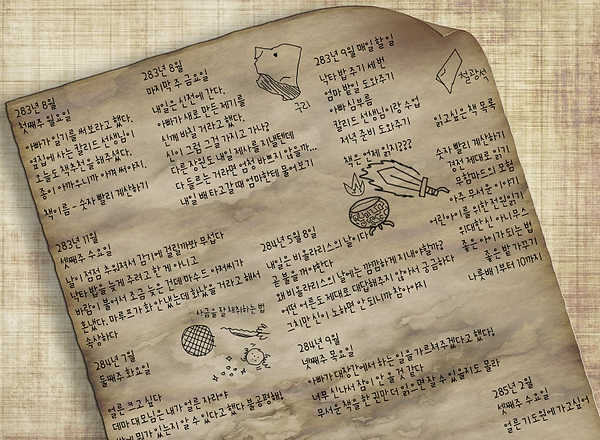 283년 8월
첫째주 월요일
아빠가 일기를 써보라고 했다.
옆집에 사는 칼리드 선생님이
오늘도 책추천을 해주셨다.
종이 아까우니까 아껴 써야지.
책이름 - 숫자 빨리 계산하기
283년 8월
마지막 주 금요일
내일은 신전에 간다.
아빠가 새로 만든 제기를
신께 바칠 거라고 했다.
신이 그럼 그걸 가지고 가나?
다른 장원도 내일 제사를 지낼텐데
다 들르는 거라면 엄청 바쁘지 않을까...
내일 배 타고갈 때 엄마한테 물어보기
구리
283년 9월 매일 할 일
낙타 밥 주기 세 번
엄마 밭일 도와주기
아빠 심부름
칼리드 선생님이랑 수업
저녁 준비 도와주기
책은 언제 읽지???
철광석
읽고싶은 책 목록
숫자 빨리 계산하기
경전 제대로 읽기
무함마드의 모험
아주 무서운 이야기
어린아이를 위한 전원일기
위대한 신 아니무스
좋은 아이가 되는 법
좋은 밭 가꾸기
나룻배 1부터 10까지
283년 11월
셋째주 수요일
날이 점점 추워져서 감기에 걸릴까봐 무섭다
낙타 밥을 늦게 주려고 한 게 아닌데
바람이 불어서 조금 늦은 건데 마스드 아저씨가
혼냈다. 마루프가 와 안 냈는데 화났을 거라고 해서
속상하다
사금을 잘 채취하는 법
284년 5월 8일
내일은 비올라리스의 날이다
곧 불을 꺼야한다
왜 비올라리스의 날에는 깜깜하게 지내야할까?
어떤 어른도 제대로 대답해주지 않아서 궁금하다
그치만 신이 노하면 안 되니까 참아야지
284년 7월
둘째주 화요일
얼른 크고 싶다
데마 대모님은 내가 얼른 자라야
284년 9월
넷째주 목요일
아빠가 대장간에서 하는 일을 가르쳐주겠다고 했다!
너무 신나서 잠이 안 올 것 같다
무서운 책을 한 권만 더 읽으면 잘 수 있을지도 몰라
285년 2월
셋째주 수요일
얼른 기도원에 가고싶어